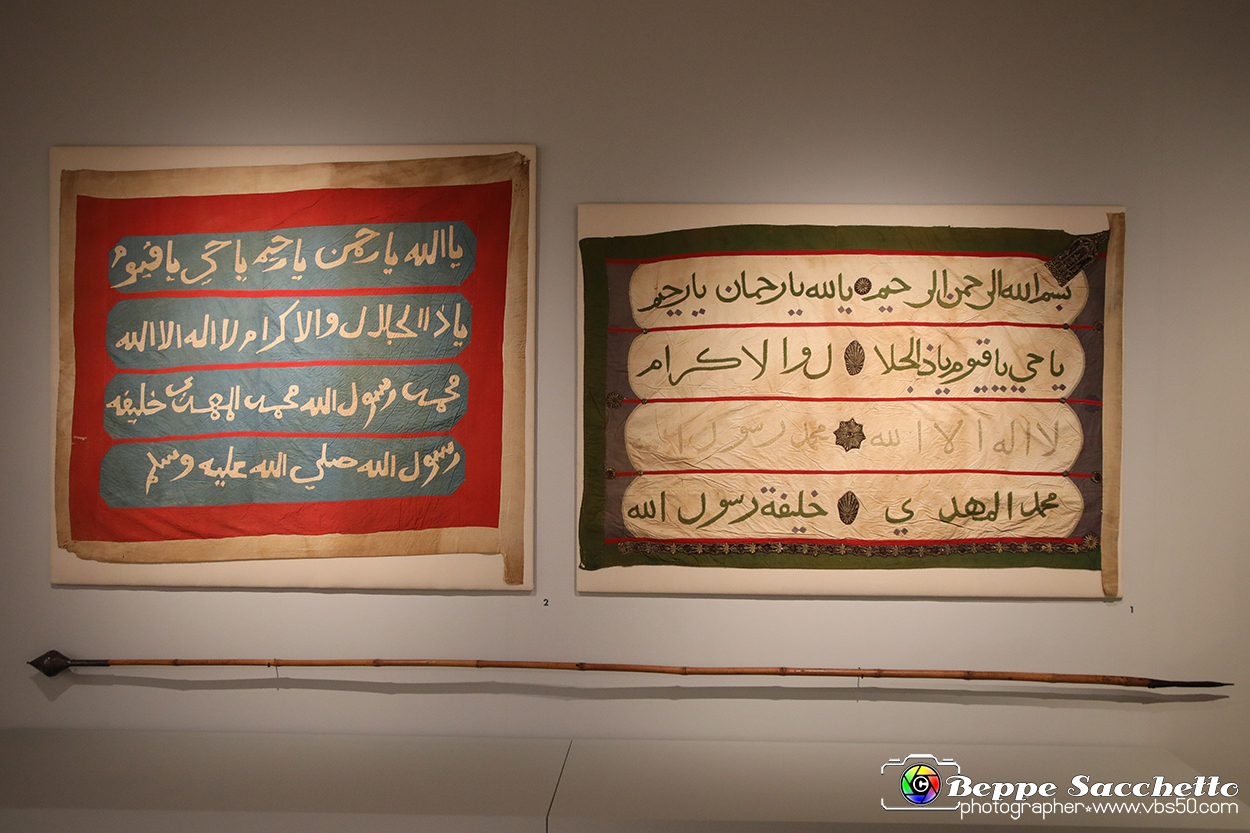 ياالله يارحمن يارحيم ياحي ياقيوم
ياذاالجلال والاكرام لااله الاالله
محمد رسول الله محمد المهدي خليفه
رسول الله صلي الله عليه وسلم
2
بسم الله الرحمن الرحيم ياالله يارحمان يارحيم
ياحي ياقيوم ياذالجلا ل والاكرام
لااله الا الله محمد رسول الله
محمد المهدي خليفة رسول الله
1
Beppe Sacchetto
photographer*www.vbs50.com